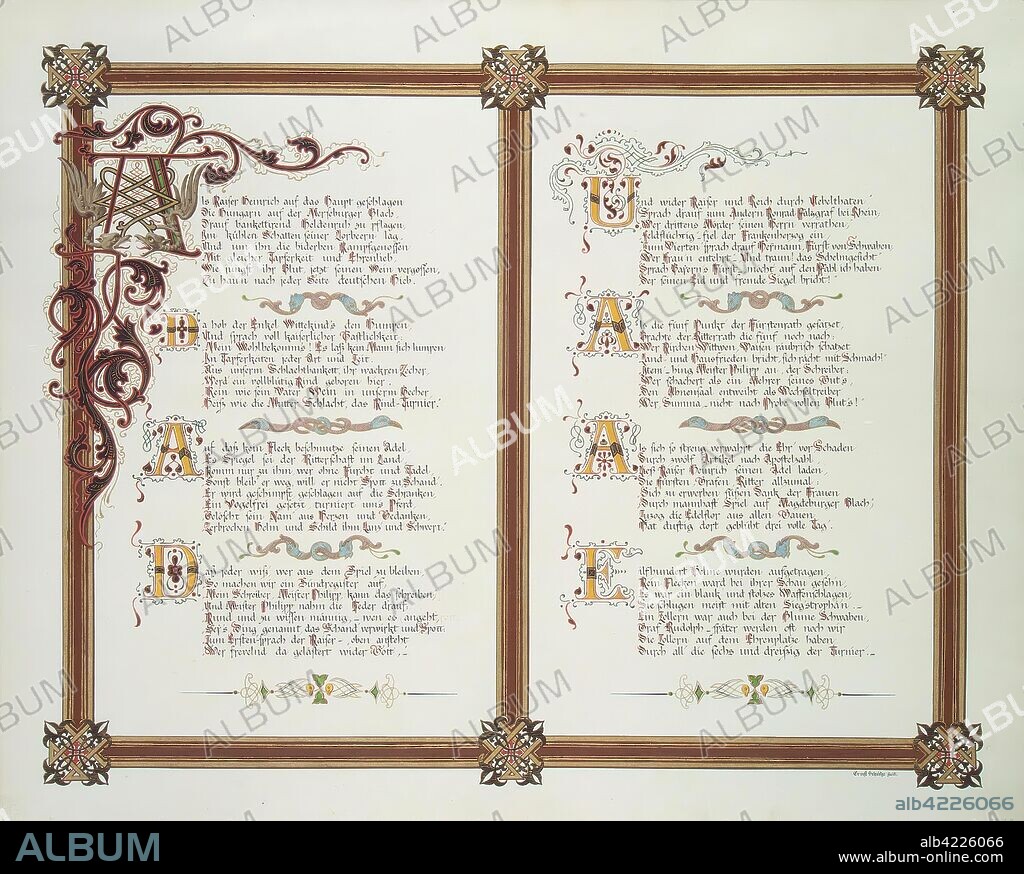 Als Kaiser Heinrich auf das Haupt geschlagen
Die Hungarn auf der Merseburger Flach,
Drauf bankettirend Heldenruh zu pflagen
Im kühlen Schatten seiner Lorbeern lag,
Und um ihn die biderben Kampfgenossen
Mit gleicher Tapferkeit und Ehrenlieb,
Wie jüngst ihr Blut, jetzt seinen Wein vergossen,
Zu hau'n nach jeder Seite deutschen Hieb.
Da hob der Enkel Wittekind's den Humpen,
Und sprach voll kaiserlicher Gastlichkeit:
An Tapferkeiten jeder Art und Zeit.
Aus unserm Schlachtbankett, ihr wackren Zecher,
Werd ein vollblütig Kind geboren hier,
Rein wie sein Vater Wein in unserm Becher
Heiß wie die Mutter Schlacht, das Kind-Turnier."
Auf daß kein Fleck beschmutze seinen Adel,
Es Spiegel sei der Ritterschaft im Land,
Komm nur zu ihm wer ohne Furcht und Tadel,
Sonst bleib' er weg, will er nicht Spott zu Schand'.
Er wird geschimpft, geschlagen auf die Schranken,
Ein Vogelfrei gesetzt turniert ums Pferd,
Gelöscht sein Nam' aus Herzen und Gedanken,
Zerbrochen Helm und Schild ihm, Lanz' und Schwert."
Daß jeder wiß wer aus dem Spiel zu bleiben,
So machen wir ein Sündregister auf,
Mein Schreiber, Meister Philipp kann das schreiben,
Und Meister Philipp nahm die Feder drauf.
Kund und zu wissen männig_ wen es angeht,
Sei's Ding genannt das Schand verwirkt und Spott:
Zum Ersten sprach der Kaiser_, oben ansteht
Wer frevelnd da gelästert wider Gott,_
Und wider Kaiser und Reich durch Uebelthaten
Sprach drauf zum Andern Konrad Pfalzgraf bei Rhein,
Wer drittens Mörder seinen Herrn verrathen,
Feldflüchrig_fiel der Frankenherzog ein
Zum Vierten sprach drauf Hermann, Fürst von Schwaben:
Wer Frau'n entehrt
Sprach Bayern's Fürst
Wer seinen Eid und fremde Siegel bricht!"
Als die fünf Punkt der Fürstenrath gesetzet,
Brachte der Ritterrath die fünf noch nach:
Wer Kirchen Wittwen Waisen räubrisch schatzet
Land und Hausfrieden bricht, sich rächt mit Schmach!
Item_hing Meister Philipp an, der Schreiber:
Wer schachert als ein Mehrer seines Gut's,
Den Ahnensaal entweiht als Wechseltreiber
Wer Summa_nicht nach Probe vollen Blut's!"
Als sich so streng verwahrt die Ehr' vor Schaden
Durch zwölf Artikel nach Apostelzahl
Ließ Kaiser Heinrich seinen Adel laden,
Die Fürsten, Grafen Ritter allzumal:
Sich zu erwerben süßen Dank der Frauen
Durch mannhaft Spiel auf Magdeburger Flach,
Zuzog die Edelflor aus allen Gauen,
Hat duftig dort geblüht drei volle Tag'.
Elfhundert Helme wurden aufgetragen,
Kein Flecken ward bei ihrer Schau gesehn,
Es war ein blank und stolzes Waffenschlagen,
Ein Zollern war auch bei der Blume Schwaben,
Graf Rudolph_später werden oft noch wir
Die Zollern auf dem Ehrenplatze haben
Durch all die sechs und dreißig der Turnier._
alb4226066
ALBUM
alb4226066
www.album-online.com